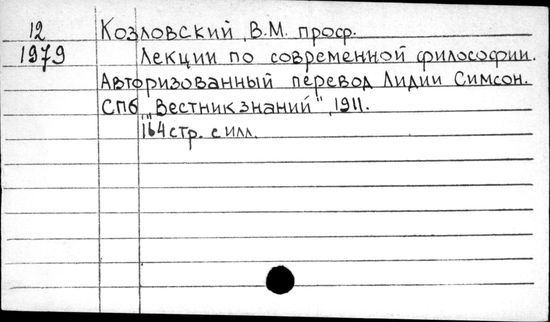 12 Козловский, В.М. проф.
1979 Лекции по современной философии.
Авторизованный перевод Лидии Симсон.
СПб „Вестник знаний", 1911.
164 стр. с илл.